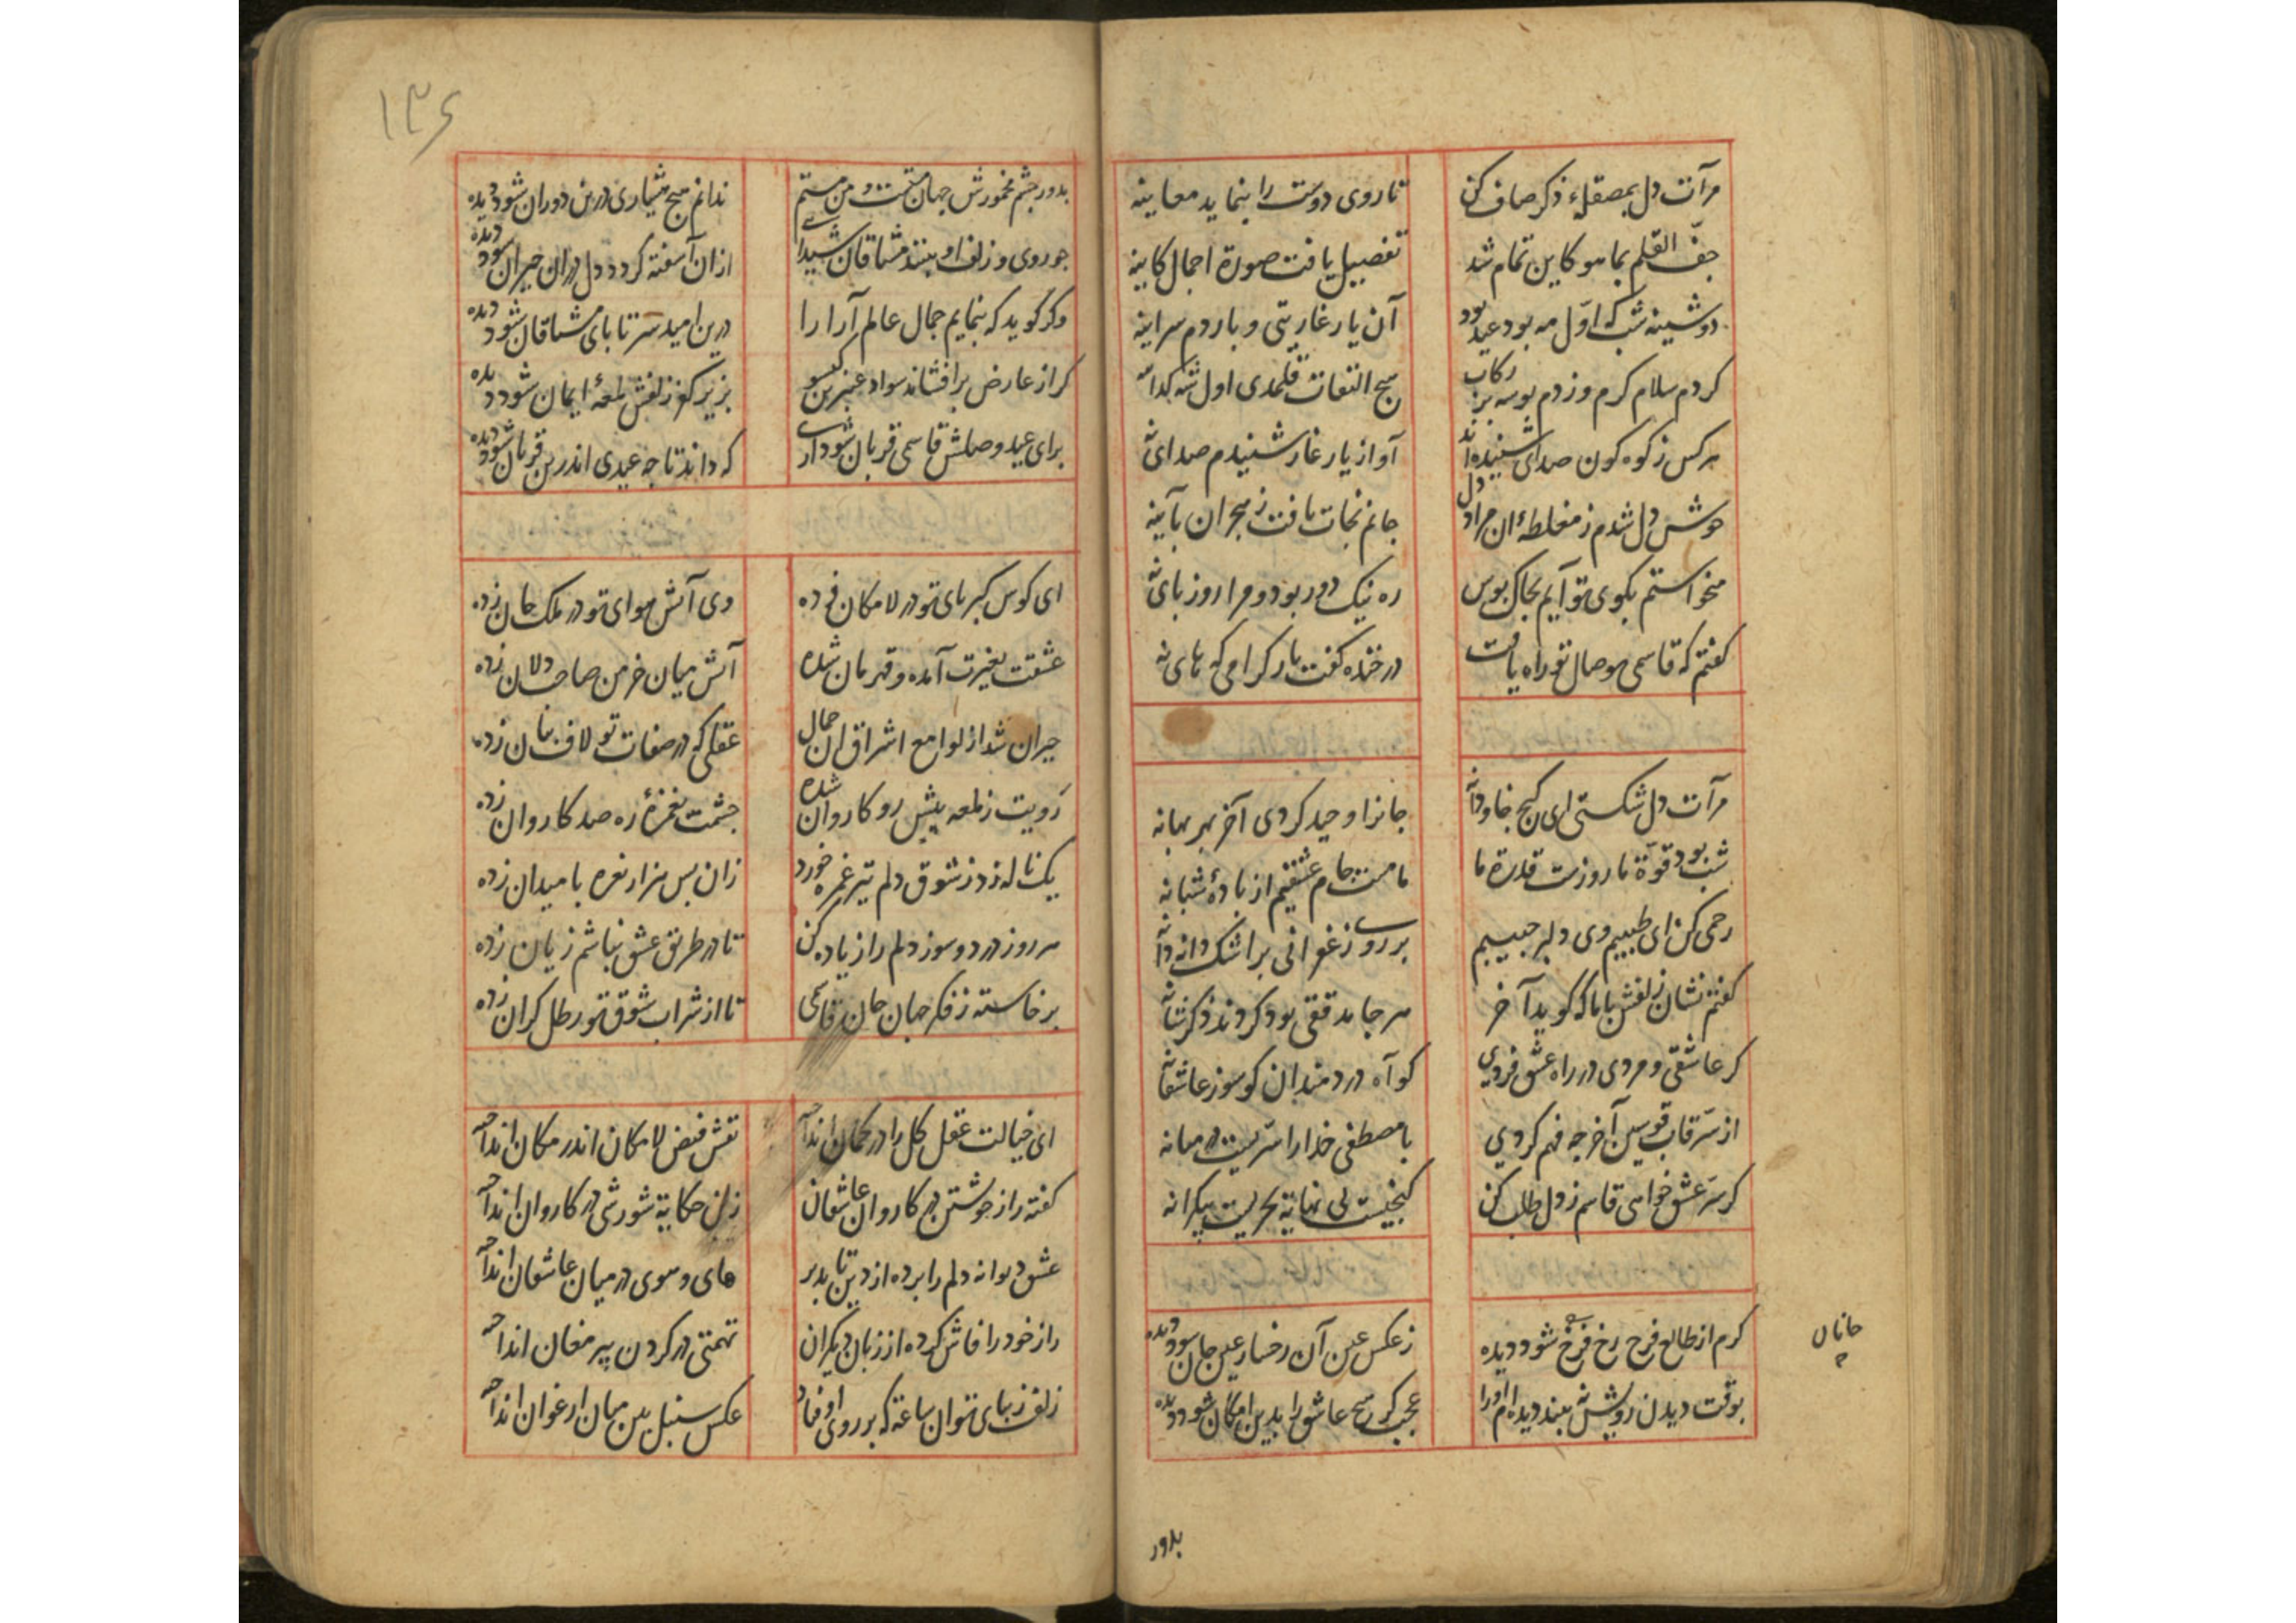 مرآت دل بمصقلهٔ ذکر صاف کن
تا روی دوست را بنماید معاینه
جفّ القلم بما هو کاین تمام شد
تفصیل یافت صورة اجمال کاینه
دوشینه شب که اوّل مه بود عید بود
آن یار غار و یار دم سراینه
کردم سلام کرم و زدم بوسه بر رکاب
هیچ التفات
هر کس ز کوه کون صدای شنیده‌اند
آواز یار غار شنیدم
خوش دل شدم ز مغلطهٔ آن مراد دل
جانم نجات یافت ز هجران
میخواستم بکوی تو آیم بخاک بوس
ره نیک دور بود و مرا روز
کفتم که قاسمی بوصال تو راه یافت
در خنده کفت یار کرامی که
مرآت دل شکستی ای کنج جاودانه
جانرا وحید کردی آخر بهر بهانه
شب بود قوّة ما روزست قدرة ما
ما مست جام عشقیم از بادهٔ شبانه
رحمی کن ای طبیبم وی دلبر حبیبم
بر روی زعفرانی بر اشک دانه دانه
کفتم نشان زلفش با ما که کوید آخر
هر جا مدققی بود کردند ذکر شانه
کر عاشقی و مردی در راه عشق فردی
کو آه دردمندان کو سوز عاشقانه
از سرّ قاب قوسین آخر چه فهم کردی
با مصطفی خدا را سرّیست در میانه
کر سرّ عشق خواهی قاسم ز دل طلب کن
کنجیست بی نهایة بحریست بیکرانه
کرم از طالع فرخ رخ فرخ شود دیده
ز عکس عین آن رخسار عین جان شود دیده
بوقت دیدن رویش نه بیند دیدهام او را
عجب کر هیچ عاشق را بدین امکان شود دیده
جانان
بدور
۱۳۶
بدور چشم مخمورش جهان مستست و من مستم
ندانم هیچ هشیاری درین دوران شود دیده
چو روی و زلف او بینند مشتاقان شیدایی
از آن آشفته کردد دل در آن حیران شود دیده
وکر کوید که بنمایم جمال عالم آرا را
درین امید سر تا پای مشتاقان شود دیده
کر از عارض برافشاند سواد عنبرین کیسو
بزیر کفر زلفش لمعهٔ ایمان شود دیده
برای عید وصلش قاسمی قربان شود آری
که داند تا چه عیدی اندرین قربان شود دیده
ای کوس کبریای تو در لامکان زده
وی آتش هوای تو در ملک جان زده
عشقت بغیرت آمده و قهرمان شده
آتش میان خرمن صاحبدلان زده
حیران شد از لوامع اشراق آن جمال
عقلی که در صفات تو لاف بیان زده
رویت ز لمعه پیش رو کاروان شده
چشمت بغمزهٔ ره صد کاروان زده
یک ناله زد ز شوق دلم تیر غمزه خورد
زان پس هزار نعره بامید آن زده
هر روز درد و سوز دلم را زیاده کن
تا در طریق عشق نباشم زیان زده
برخاسته ز فکر جهان جان قاسمی
تا از شراب شوق تو رطل کران زده
ای خیالت عقل کل را در کمان انداخته
نقش فیض لامکان اندر مکان انداخته
کفته راز خویشتن در کاروان عاشقان
زین حکایة شورشی در کاروان انداخته
عشق دیوانه دلم را برده از دین تا بدیر
های و هوی در میان عاشقان انداخته
راز خود را فاش کرده از زبان دیکران
تهمتی در کردن پیر مغان انداخته
زلف زیبای تو آن ساعة که بر روی اوفتاد
عکس سنبل بین میان ارغوان انداخته